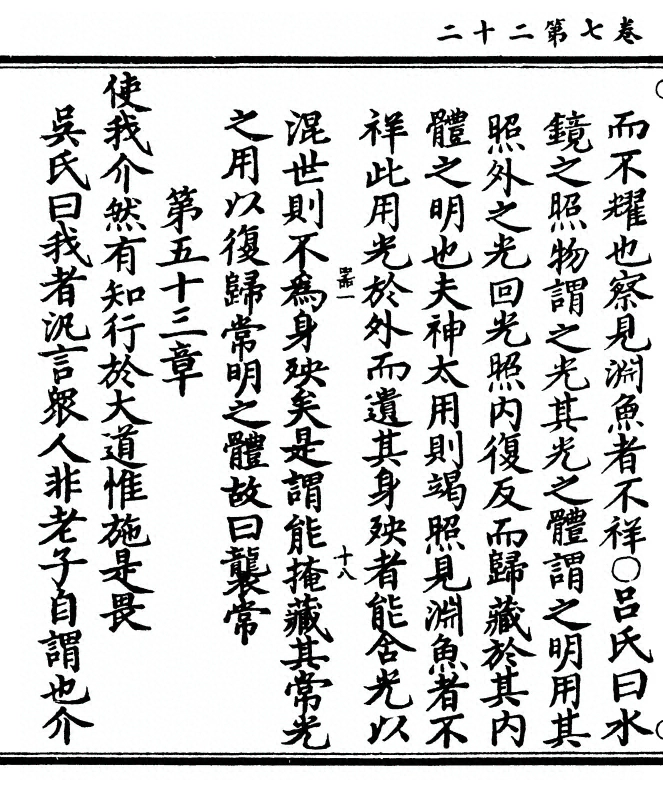 卷七第二十二
而不耀也察見淵魚者不祥〇呂氏曰水
鏡之照物謂之光其光之體謂之明用其
照外之光回光照內復反而歸藏於其內
體之明也夫神太用則竭照見淵魚者不
祥此用光於外而遺其身殃者能舍光以
十八
混世則不為身殃矣是謂能掩藏其常光
之用以復歸常明之體故曰襲常
第五十三章
使我介然有知行於大道惟施是畏
吳氏曰我者汎言眾人非老子自謂也介